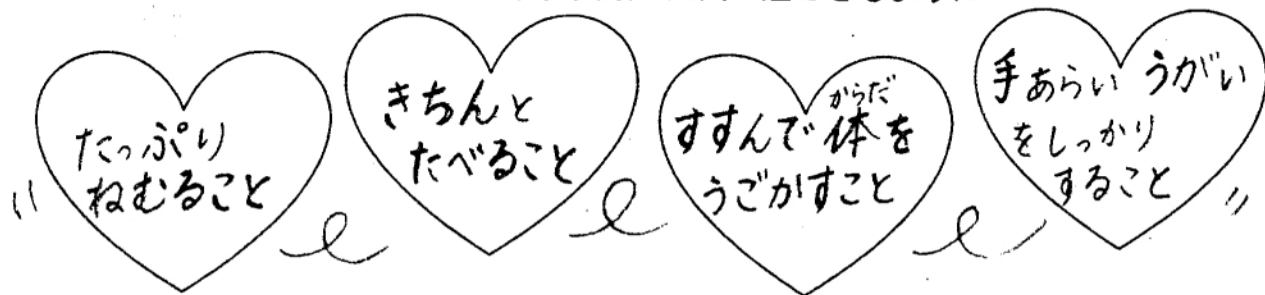 たっぷり
ねむること
きちんと
たべること
からだ
すすんで体を
うごかすこと
手あらい うがい
をしっかり
すること